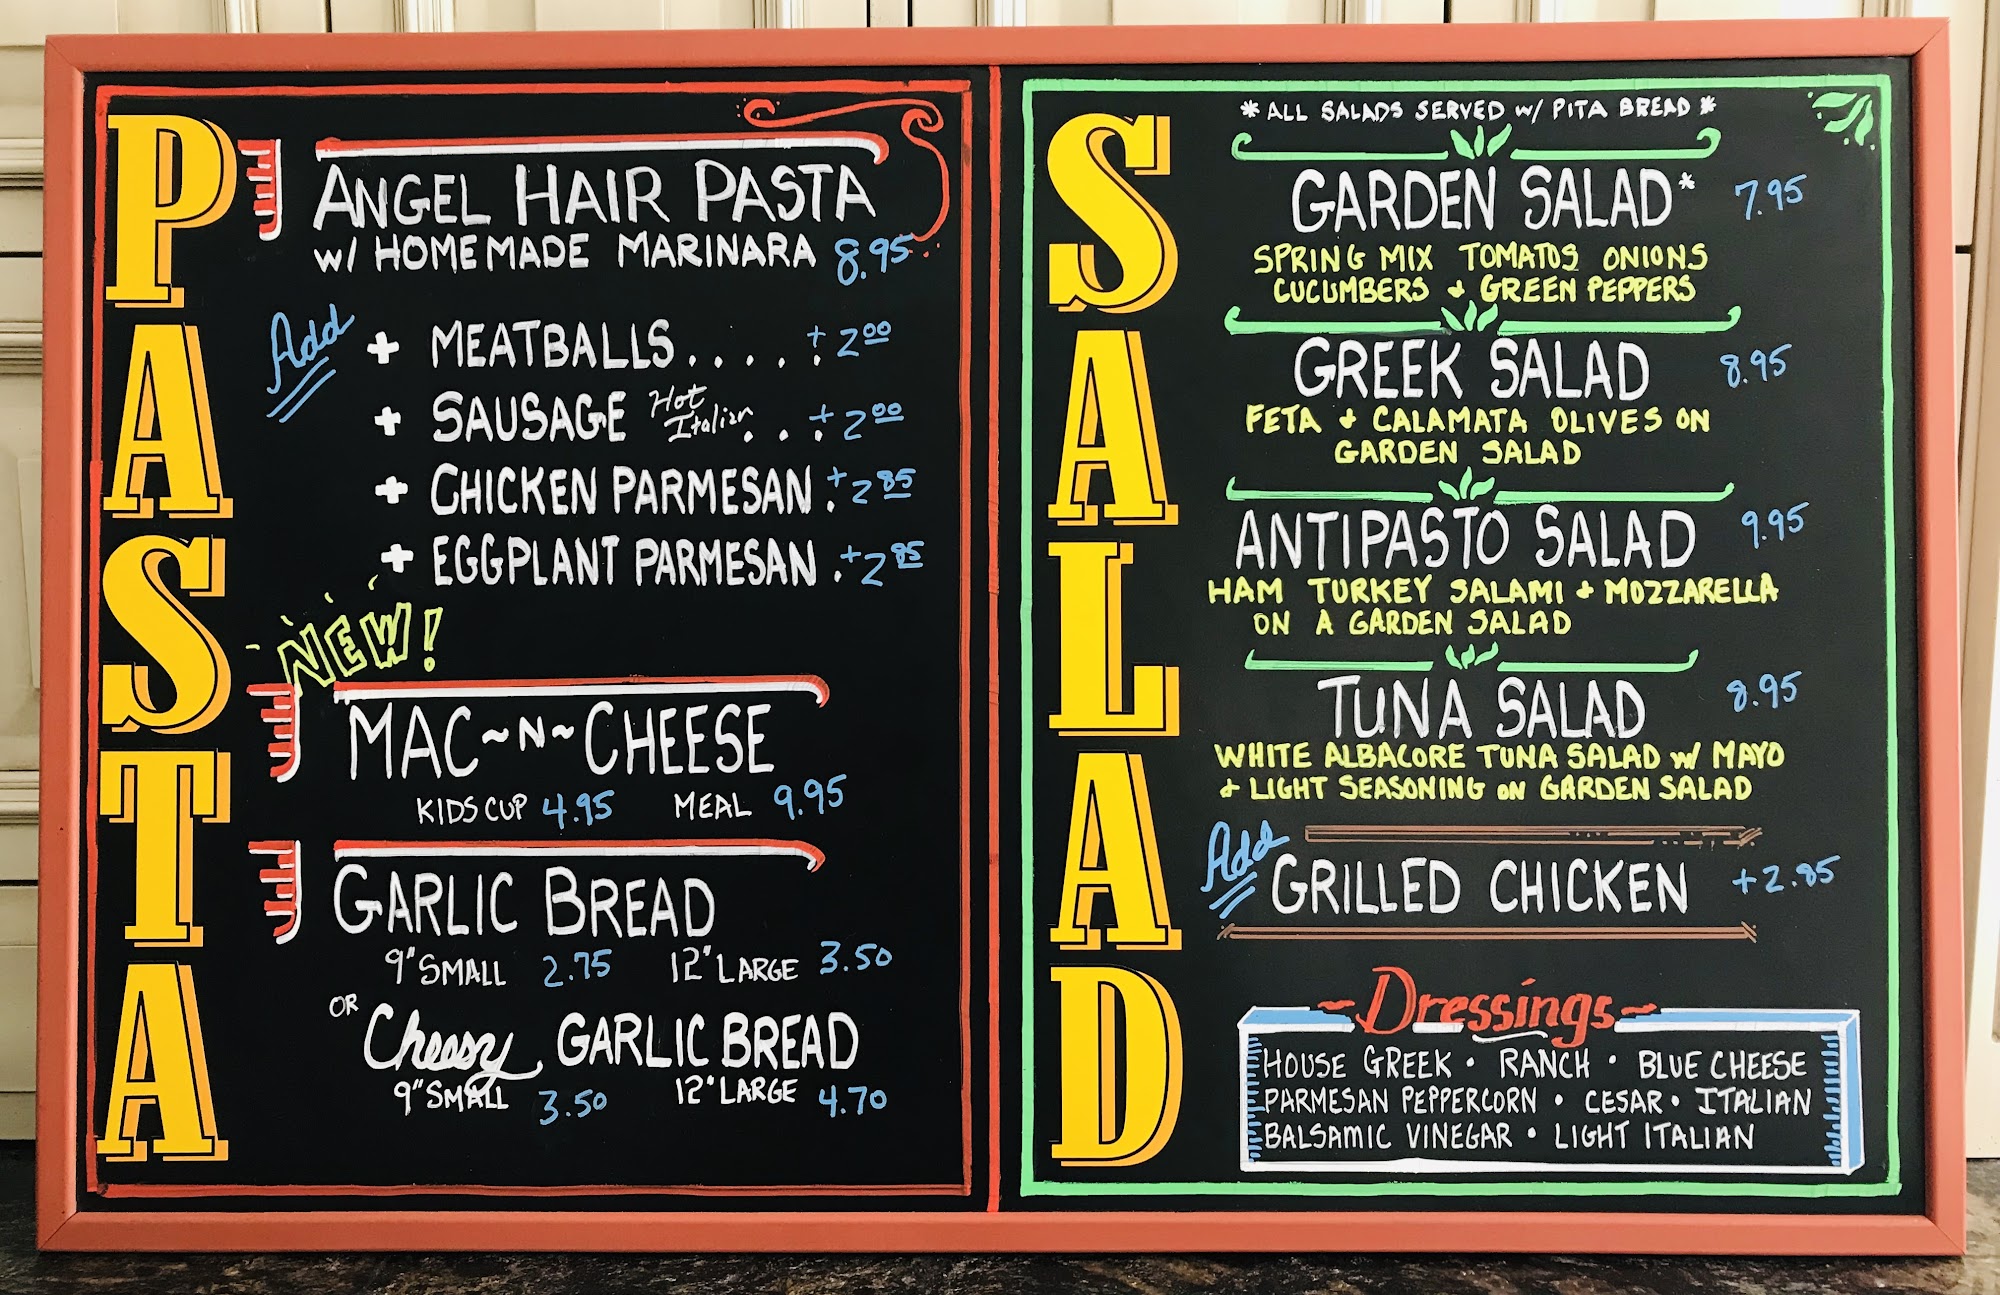 PASTA
ANGEL HAIR PASTA
w/ HOMEMADE MARINARA 8.95
Add
+ MEATBALLS..... +2.00
+ SAUSAGE Hot Italian... +2.00
+ CHICKEN PARMESAN. +2.85
+ EGGPLANT PARMESAN. +2.85
NEW!
MAC~N~CHEESE
KIDS CUP 4.95 MEAL 9.95
GARLIC BREAD
9" SMALL 2.75 12" LARGE 3.50
OR
Cheesy GARLIC BREAD
9" SMALL 3.50 12" LARGE 4.70
SALAD
*ALL SALADS SERVED w/ PITA BREAD*
GARDEN SALAD* 7.95
SPRING MIX TOMATOS ONIONS
CUCUMBERS + GREEN PEPPERS
GREEK SALAD 8.95
FETA + CALAMATA OLIVES ON
GARDEN SALAD
ANTIPASTO SALAD 9.95
HAM TURKEY SALAMI + MOZZARELLA
ON A GARDEN SALAD
TUNA SALAD 8.95
WHITE ALBACORE TUNA SALAD w/ MAYO
+ LIGHT SEASONING ON GARDEN SALAD
Add
GRILLED CHICKEN +2.85
~Dressings~
HOUSE GREEK • RANCH • BLUE CHEESE
PARMESAN PEPPERCORN • CESAR • ITALIAN
BALSAMIC VINEGAR • LIGHT ITALIAN